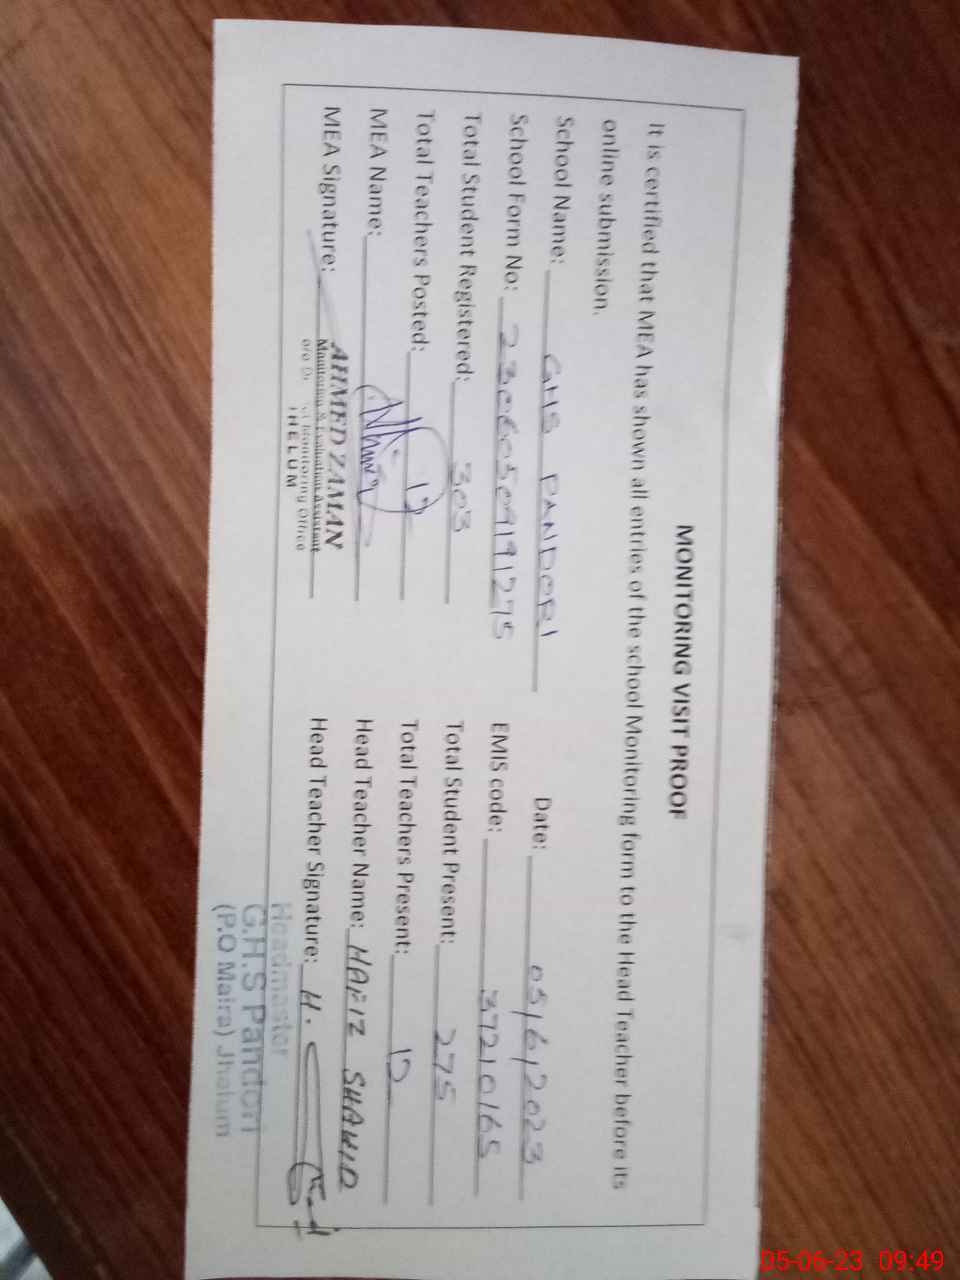 MONITORING VISIT PROOF
It is certified that MEA has shown all entries of the school Monitoring form to the Head Teacher before its
online submission.
School Name: GHS PANDORI Date: 05/6/2023
School Form No: 23060509191275 EMIS code: 37210165
Total Student Registered: 303 Total Student Present: 275
Total Teachers Posted: 12 Total Teachers Present: 12
MEA Name: Head Teacher Name: HAFIZ SHAHID
MEA Signature: Head Teacher Signature: H.
AHMED ZAMAN
Monitoring & Evaluation Assistant
Monitoring Office
JHELUM
Headmaster
G.H.S Pandori
(P.O Maira) Jhelum
05-06-23 09:49